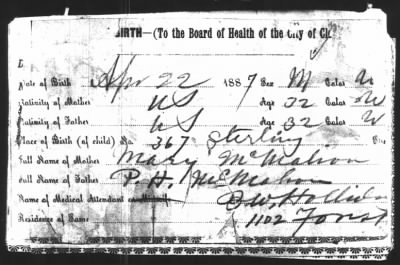 BIRTH—(To the Board of Health of the City of Cl
Date of Birth Apr 22 1887 Sex M Color W
Nativity of Mother US Age 22 Color W
Nativity of Father US Age 32 Color W
Place of Birth (of child) No. 367 Sterling
Full Name of Mother Mary McMahon
Full Name of Father P. H. McMahon
Name of Medical Attendant or
Residence of Same 1102 Forest